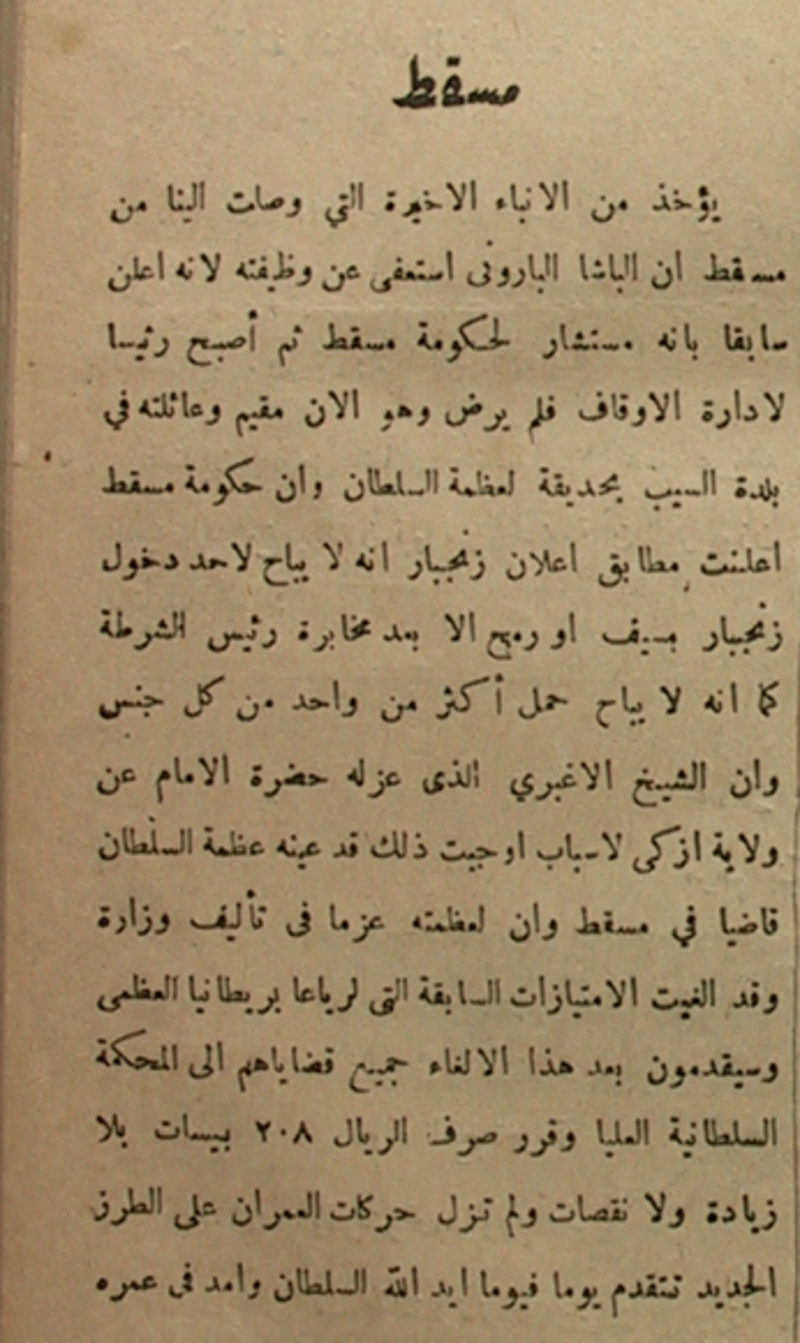 مسقط
يؤخذ من الانباء الاخيرة التي وصلت الينا من
مسقط ان الباشا الباروني استعفى عن وظيفته لانه اعلن
سابقا بانه مستشار لحكومة مسقط ثم أصبح رئيسا
لادارة الاوقاف فلم يرض وهو الآن مقيم وعائلته في
بلدة السيب بحديقة لعظمة السلطان وان حكومة مسقط
اعلنت مطابق اعلان زنجبار انه لا يباح لاحد دخول
زنجبار بسيف او رمح الا بعد مخابرة رئيس الشرطة
كما انه لا يباح حمل أكثر من واحد من كل جنس
وان الشيخ الاغبري الذي عزله حضرة الامام عن
ولاية ازكي لاسباب اوجبت ذلك قد عينه عظمة السلطان
قاضيا في مسقط وان لعظمته عزما في تأليف وزارة
وقد الغيت الامتيازات السابقة التي لرعايا بريطانيا العظمى
وسيقدمون بعد هذا الالغاء جميع قضاياهم الى المحكمة
السلطانية العليا وتقرر صرف الريال ٢٠٨ بيسات بلا
زيادة ولا نقصان ولم تزل حركات العمران على الطرز
الجديد تتقدم يوما فيوما ايد الله السلطان وامد في عمره